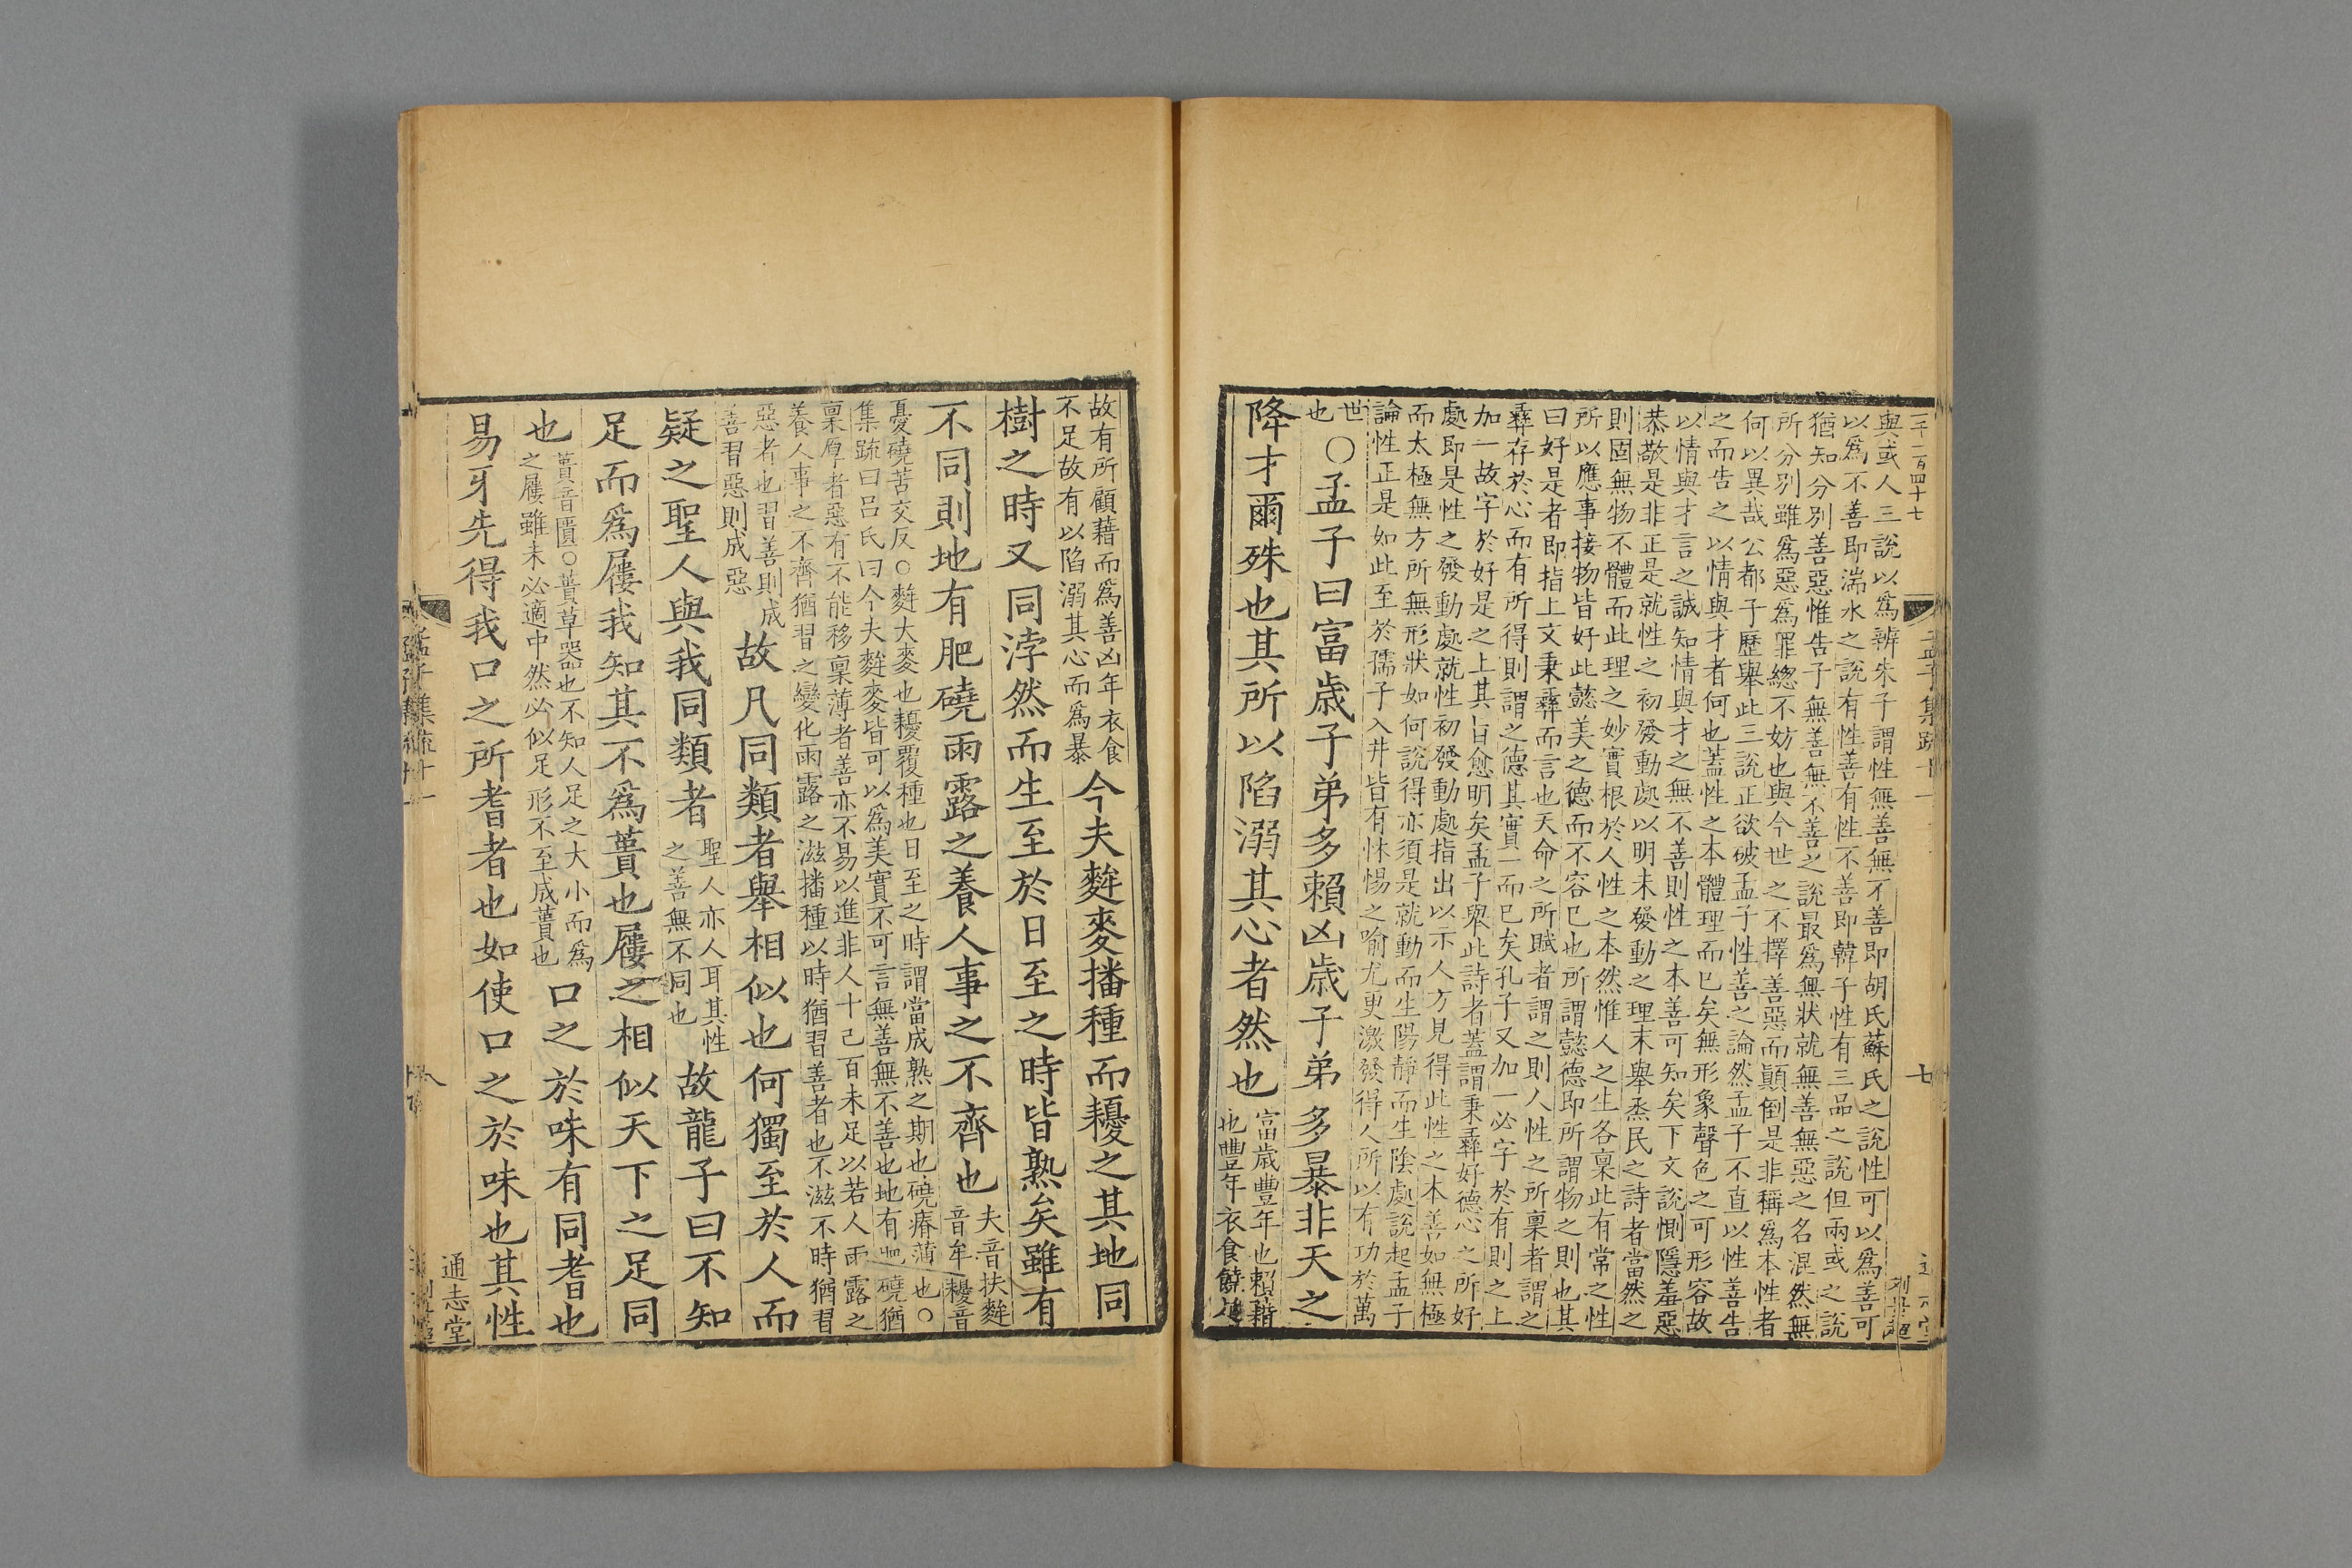 二千一百四十七
孟子集疏十一
七
與或人三說以爲辨朱子謂性無善無不善即胡氏蘇氏之說性可以爲善可
以爲不善即湍水之說有性善有性不善即韓子性有三品之說但兩或之說
猶知分別善惡惟告子無善無不善之說最爲無狀就無善無惡之名混然無
所分別雖爲惡爲罪總不妨也與今世之不擇善惡而顚倒是非稱爲本性者
何以異哉公都子歷舉此三說正欲破孟子性善之論然孟子不直以性善告
之而告之以情與才者何也蓋性之本體理而已矣無形象聲色之可形容故
以情與才言之誠知情與才之無不善則性之本善可知矣下文說惻隱羞惡
恭敬是非正是就性之初發動處以明未發動之理末舉烝民之詩者當然之
則固無物不體而此理之妙實根於人性之本然惟人之生各稟此有常之性
所以應事接物皆好此懿美之德而不容已也所謂懿德即所謂物之則也其
曰好是者即指上文秉彝而言也天命之所賦者謂之則人性之所稟者謂之
彝存於心而有所得則謂之德其實一而已矣孔子又加一必字於有則之上
加一故字於好是之上其旨愈明矣孟子舉此詩者蓋謂秉彝好德心之所好
處即是性之發動處就性初發動處指出以示人方見得此性之本善如無極
而太極無方所無形狀如何說得亦須是就動而生陽靜而生陰處說起孟子
論性正是如此至於孺子入井皆有怵惕之喻尤更激發得人所以有功於萬
世
也
○孟子曰富歲子弟多賴凶歲子弟多暴非天之
降才爾殊也其所以陷溺其心者然也
富歲豐年也賴藉
也豐年衣食饒足
故有所顧藉而爲善凶年衣食
不足故有以陷溺其心而爲暴
今夫麰麥播種而耰之其地同
樹之時又同浡然而生至於日至之時皆熟矣雖有
不同則地有肥磽雨露之養人事之不齊也
夫音扶麰
音牟耰音
憂磽苦交反○麰大麥也耰覆種也日至之時謂當成熟之期也磽瘠薄也○
集疏曰呂氏曰今夫麰麥皆可以爲美實不可言無善無不善也地有肥磽猶
稟厚者惡有不能移稟薄者善亦不易以進非人十己百未足以若人雨露之
養人事之不齊猶習之變化雨露之滋播種以時猶習善者也不滋不時猶習
惡者也習善則成
善習惡則成惡
故凡同類者舉相似也何獨至於人而
疑之聖人與我同類者
聖人亦人耳其性
之善無不同也
故龍子曰不知
足而爲屨我知其不爲蕢也屨之相似天下之足同
也
蕢音匱○蕢草器也不知人足之大小而爲
之屨雖未必適中然必似足形不至成蕢也
口之於味有同耆也
易牙先得我口之所耆者也如使口之於味也其性
孟子集疏十一
八
通志堂